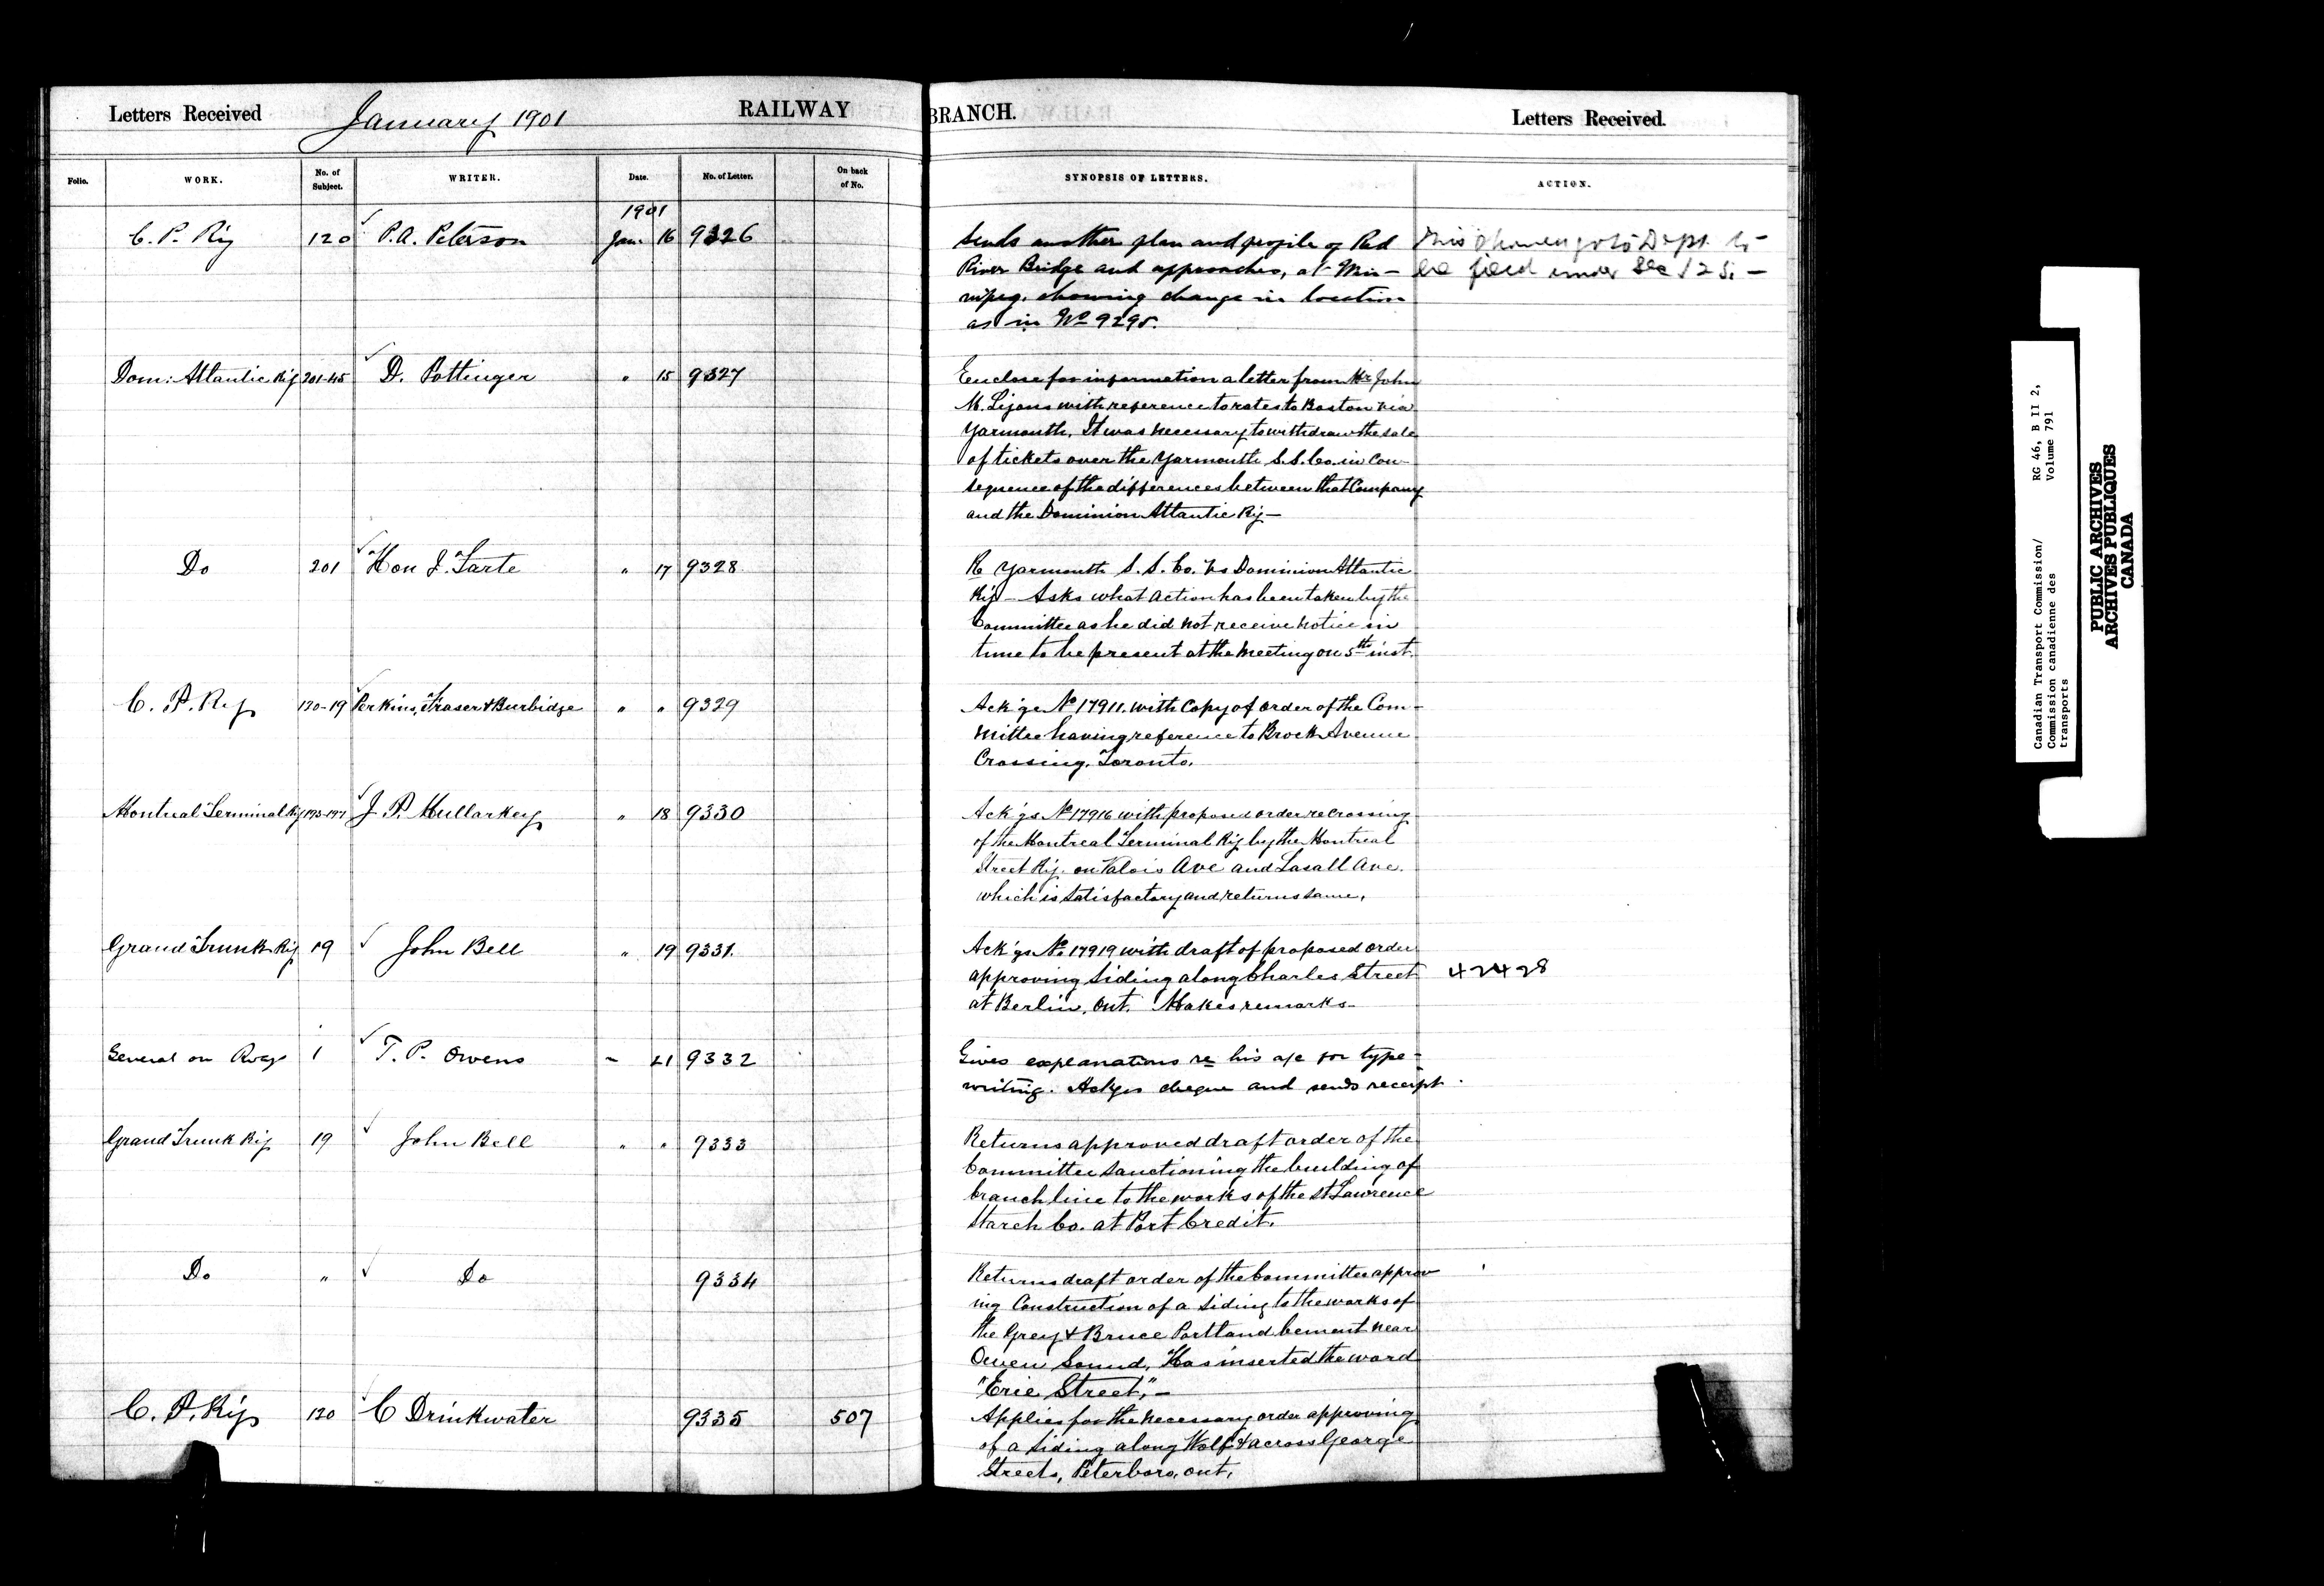 Letters Received January 1901 RAILWAY BRANCH. Letters Received.
Folio. WORK. No. of Subject. WRITER. Date. No. of Letter. On back of No. SYNOPSIS OF LETTERS. ACTION.
1901
C. P. Ry 120 P.A. Peterson Jan. 16 9326 Sends another plan and profile of Red
River Bridge and approaches, at Win- be filed under Sec
nipeg, showing change in location
as in No 9295.
Dom: Atlantic Ry 201-45 D. Pottinger " 15 9327 Enclose for information a letter from Mr John
M. Lyons with reference to rates to Boston via
Yarmouth. It was necessary to withdraw the sale
of tickets over the Yarmouth S.S. Co. in con-
sequence of the differences between that Company
and the Dominion Atlantic Ry—
Do 201 Hon J. Tarte " 17 9328 Re Yarmouth S.S. Co. vs Dominion Atlantic
Ry— Asks what action has been taken by the
Committee as he did not receive notice in
time to be present at the meeting on 5th inst.
C. P. Ry 120-19 Perkins, Fraser & Burbidge " " 9329 Ack'ge No 17911. with copy of order of the Com-
mittee having reference to Brock Avenue
Crossing, Toronto.
Montreal Terminal Ry J. P. Mullarkey " 18 9330 Ack'gs No 17916 with proposed order re crossing
of the Montreal Terminal Ry by the Montreal
Street Ry. on Valois Ave and Lasall Ave.
which is satisfactory and returns same.
Grand Trunk Ry 19 John Bell " 19 9331. Ack'gs No 17919 with draft of proposed order
approving siding along Charles Street 42428
at Berlin, Ont. Makes remarks—
General on Rways 1 T. P. Owens " 21 9332 Gives explanations re his a/c for type-
writing. Ackges cheque and sends receipt.
Grand Trunk Ry 19 John Bell " " 9333 Returns approved draft order of the
Committee sanctioning the building of
branch line to the works of the St Lawrence
Starch Co. at Port Credit.
Do " Do 9334 Returns draft order of the Committee approv
ing construction of a siding to the works of
the Grey & Bruce Portland Cement near
Owen Sound. Has inserted the word
"Erie Street,"—
C. P. Ry 120 C Drinkwater 9335 507 Applies for the necessary order approving
of a siding along Wolf & across George
Streets, Peterboro, Ont.
Canadian Transport Commission/ RG 46, B II 2,
Commission canadienne des Volume 791
transports
PUBLIC ARCHIVES
ARCHIVES PUBLIQUES
CANADA